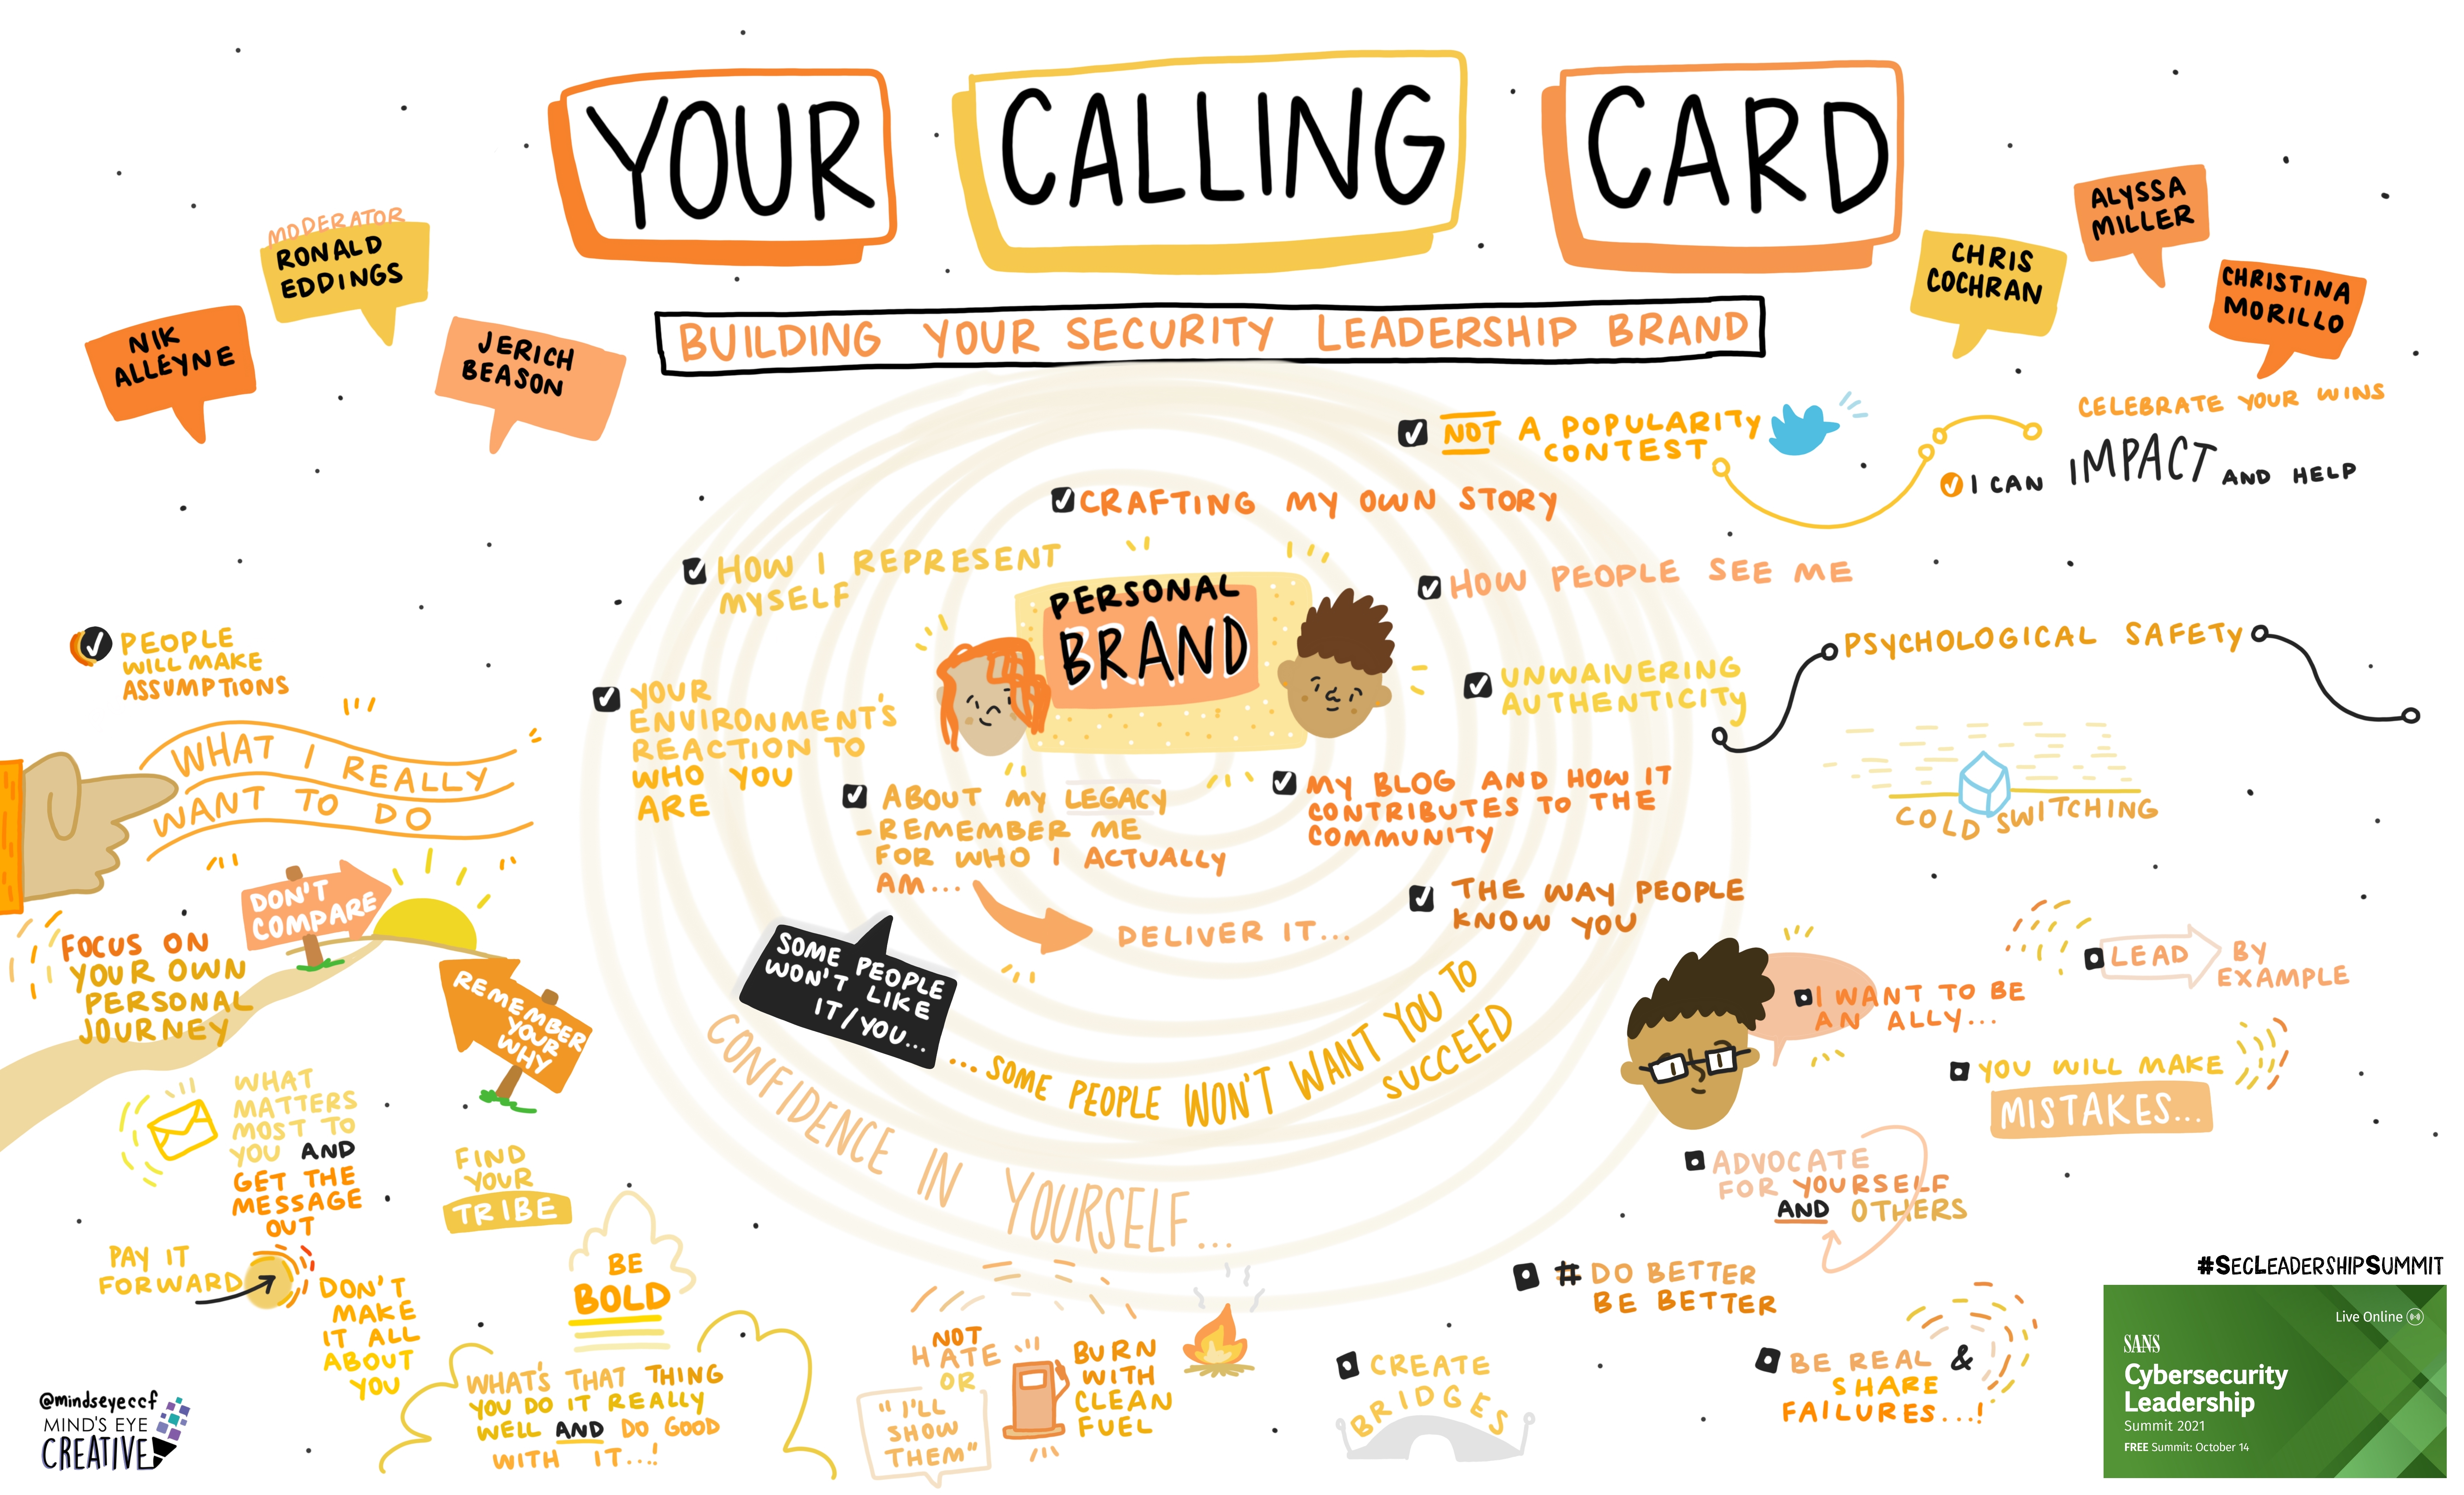 YOUR CALLING CARD
BUILDING YOUR SECURITY LEADERSHIP BRAND
MODERATOR
RONALD
EDDINGS
NIK
ALLEYNE
JERICH
BEASON
CHRIS
COCHRAN
ALYSSA
MILLER
CHRISTINA
MORILLO
NOT A POPULARITY
CONTEST
CELEBRATE YOUR WINS
I CAN IMPACT AND HELP
CRAFTING MY OWN STORY
HOW I REPRESENT
MYSELF
PERSONAL
BRAND
HOW PEOPLE SEE ME
UNWAIVERING
AUTHENTICITY
PSYCHOLOGICAL SAFETY
COLD SWITCHING
YOUR
ENVIRONMENT'S
REACTION TO
WHO YOU
ARE
ABOUT MY LEGACY
- REMEMBER ME
FOR WHO I ACTUALLY
AM...
DELIVER IT...
MY BLOG AND HOW IT
CONTRIBUTES TO THE
COMMUNITY
THE WAY PEOPLE
KNOW YOU
SOME PEOPLE
WON'T LIKE
IT/YOU...
...SOME PEOPLE WON'T WANT YOU TO
SUCCEED
CONFIDENCE IN YOURSELF...
PEOPLE
WILL MAKE
ASSUMPTIONS
WHAT I REALLY
WANT TO DO
DON'T
COMPARE
FOCUS ON
YOUR OWN
PERSONAL
JOURNEY
REMEMBER
YOUR
WHY
WHAT
MATTERS
MOST TO
YOU AND
GET THE
MESSAGE
OUT
FIND
YOUR
TRIBE
PAY IT
FORWARD
DON'T
MAKE
IT ALL
ABOUT
YOU
BE
BOLD
WHAT'S THAT THING
YOU DO IT REALLY
WELL AND DO GOOD
WITH IT...!
NOT
HATE
OR
"I'LL
SHOW
THEM"
BURN
WITH
CLEAN
FUEL
CREATE
BRIDGES
I WANT TO BE
AN ALLY...
LEAD BY
EXAMPLE
YOU WILL MAKE
MISTAKES...
ADVOCATE
FOR YOURSELF
AND OTHERS
# DO BETTER
BE BETTER
BE REAL &
SHARE
FAILURES...!
#SECLEADERSHIPSUMMIT
Live Online
SANS
Cybersecurity
Leadership
Summit 2021
FREE Summit: October 14
@mindseyeccf
MIND'S EYE
CREATIVE